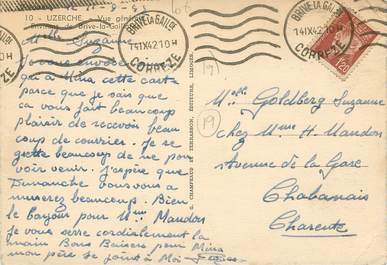 10 - UZERCHE - Vue générale
Environs de Brive-la-Gaillarde
Mlle Suzanne
Je vous envoie
qu'à Mina cette carte
parce que je sais que
ca vous fait beaucoup
plaisir de recevoir beau
coup de courrier. Je re
grette beaucoup de ne pou
voir venir. J'espère que
Dimanche vous vous a
muserez beaucoup. Bien
le bonjour pour Mme Mandon.
Je vous serre cordialement la
main Bons Baisers pour Mina
mon père se joint à Moi
S. CHAMPEAUX DE TERRASSON, EDITEUR, LIMOGES
BRIVE-LA-GAILLDE
14 IX 42 10 H
CORREZE
BRIVE-LA-GAILLDE
14 IX 42 10 H
CORREZE
1F20
19
19
Melle Goldberg Suzanne
chez Mme H. Mandon
Avenue de la Gare
Chabanais
Charente